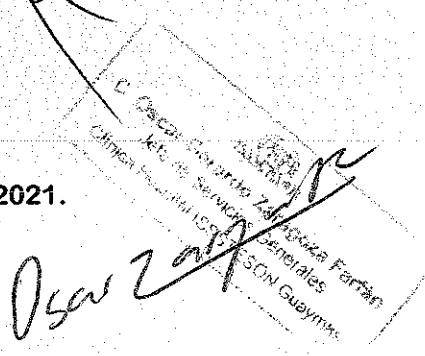 2021.
C. Oscar Gerardo Zaragoza Farfán
Jefe de Servicios Generales
Clínica Hospital ISSSTESON Guaymas
Oscar Zarag